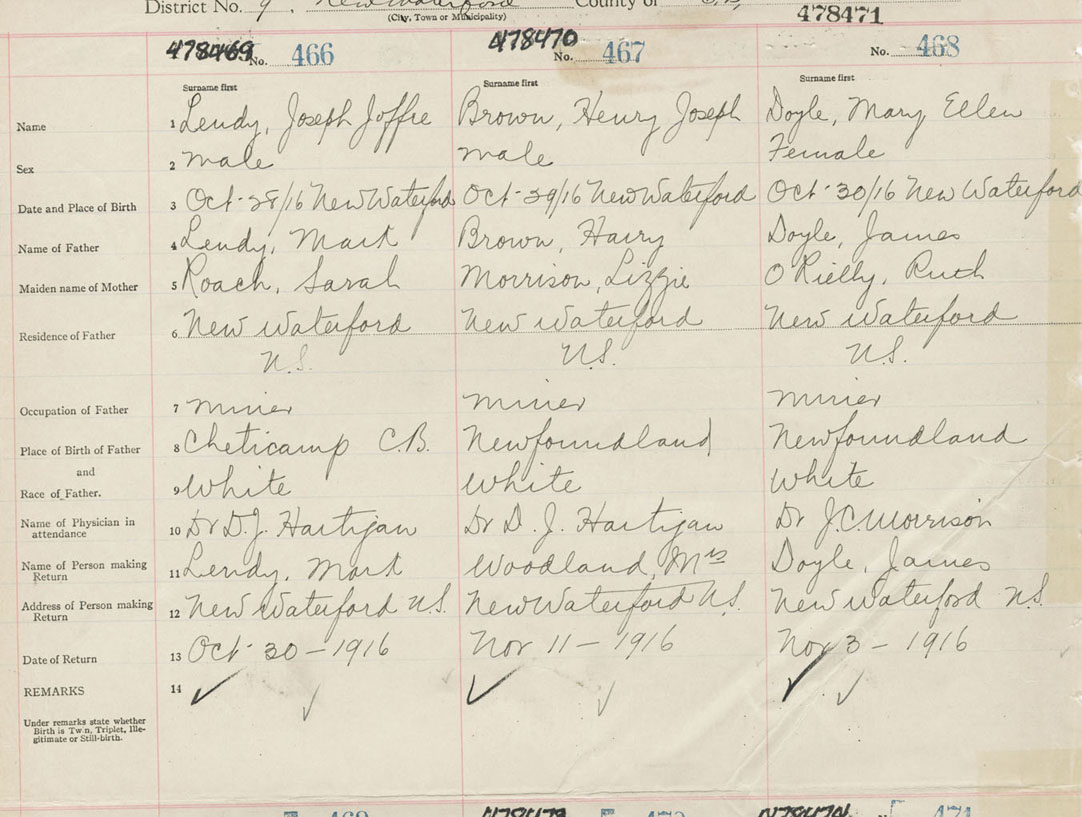 District No. 9, New Waterford County of C.B.
(City, Town or Municipality)
478469 No. 466 478470 No. 467 478471 No. 468
Surname first Surname first Surname first
Name 1 Lendy, Joseph Joffre Brown, Henry Joseph Doyle, Mary Ellen
Sex 2 male male Female
Date and Place of Birth 3 Oct-28/16 New Waterford Oct-29/16 New Waterford Oct-30/16 New Waterford
Name of Father 4 Lendy, Mark Brown, Harry Doyle, James
Maiden name of Mother 5 Roach, Sarah Morrison, Lizzie O Rielly, Ruth
Residence of Father 6 New Waterford New Waterford New Waterford
N.S. N.S. N.S.
Occupation of Father 7 miner miner miner
Place of Birth of Father 8 Cheticamp C.B. Newfoundland Newfoundland
and
Race of Father. 9 White White White
Name of Physician in attendance 10 Dr D.J. Hartigan Dr D.J. Hartigan Dr J.C Morrison
Name of Person making Return 11 Lendy, Mark Woodland, Mrs Doyle, James
Address of Person making Return 12 New Waterford N.S. New Waterford N.S. New Waterford N.S.
Date of Return 13 Oct-30-1916 Nov 11-1916 Nov 3-1916
REMARKS 14
Under remarks state whether
Birth is Twin, Triplet, Ille-
gitimate or Still-birth.